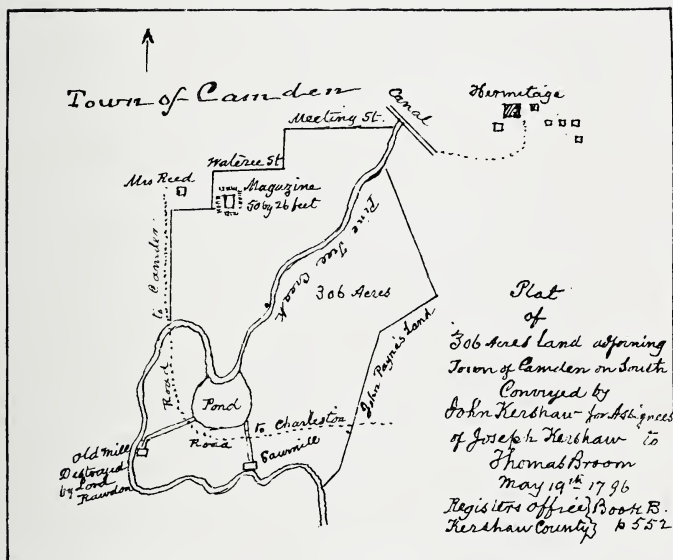 Town of Camden
Canal
Hermitage
Meeting St.
Wateree St
Mrs Reed
Magazine
50 by 26 feet
to Camden
Road
Pine Tree Creek
306 Acres
John Payne's Land
Pond
to Charleston
Road
Sawmill
Old Mill
Destroyed
by Lord
Rawdon
Plat
of
306 Acres Land adjoining
Town of Camden on South
Conveyed by
John Kershaw for Assignees
of Joseph Kershaw to
Thomas Broom
May 19th 1796
Registers office} Book B.
Kershaw County} p 552